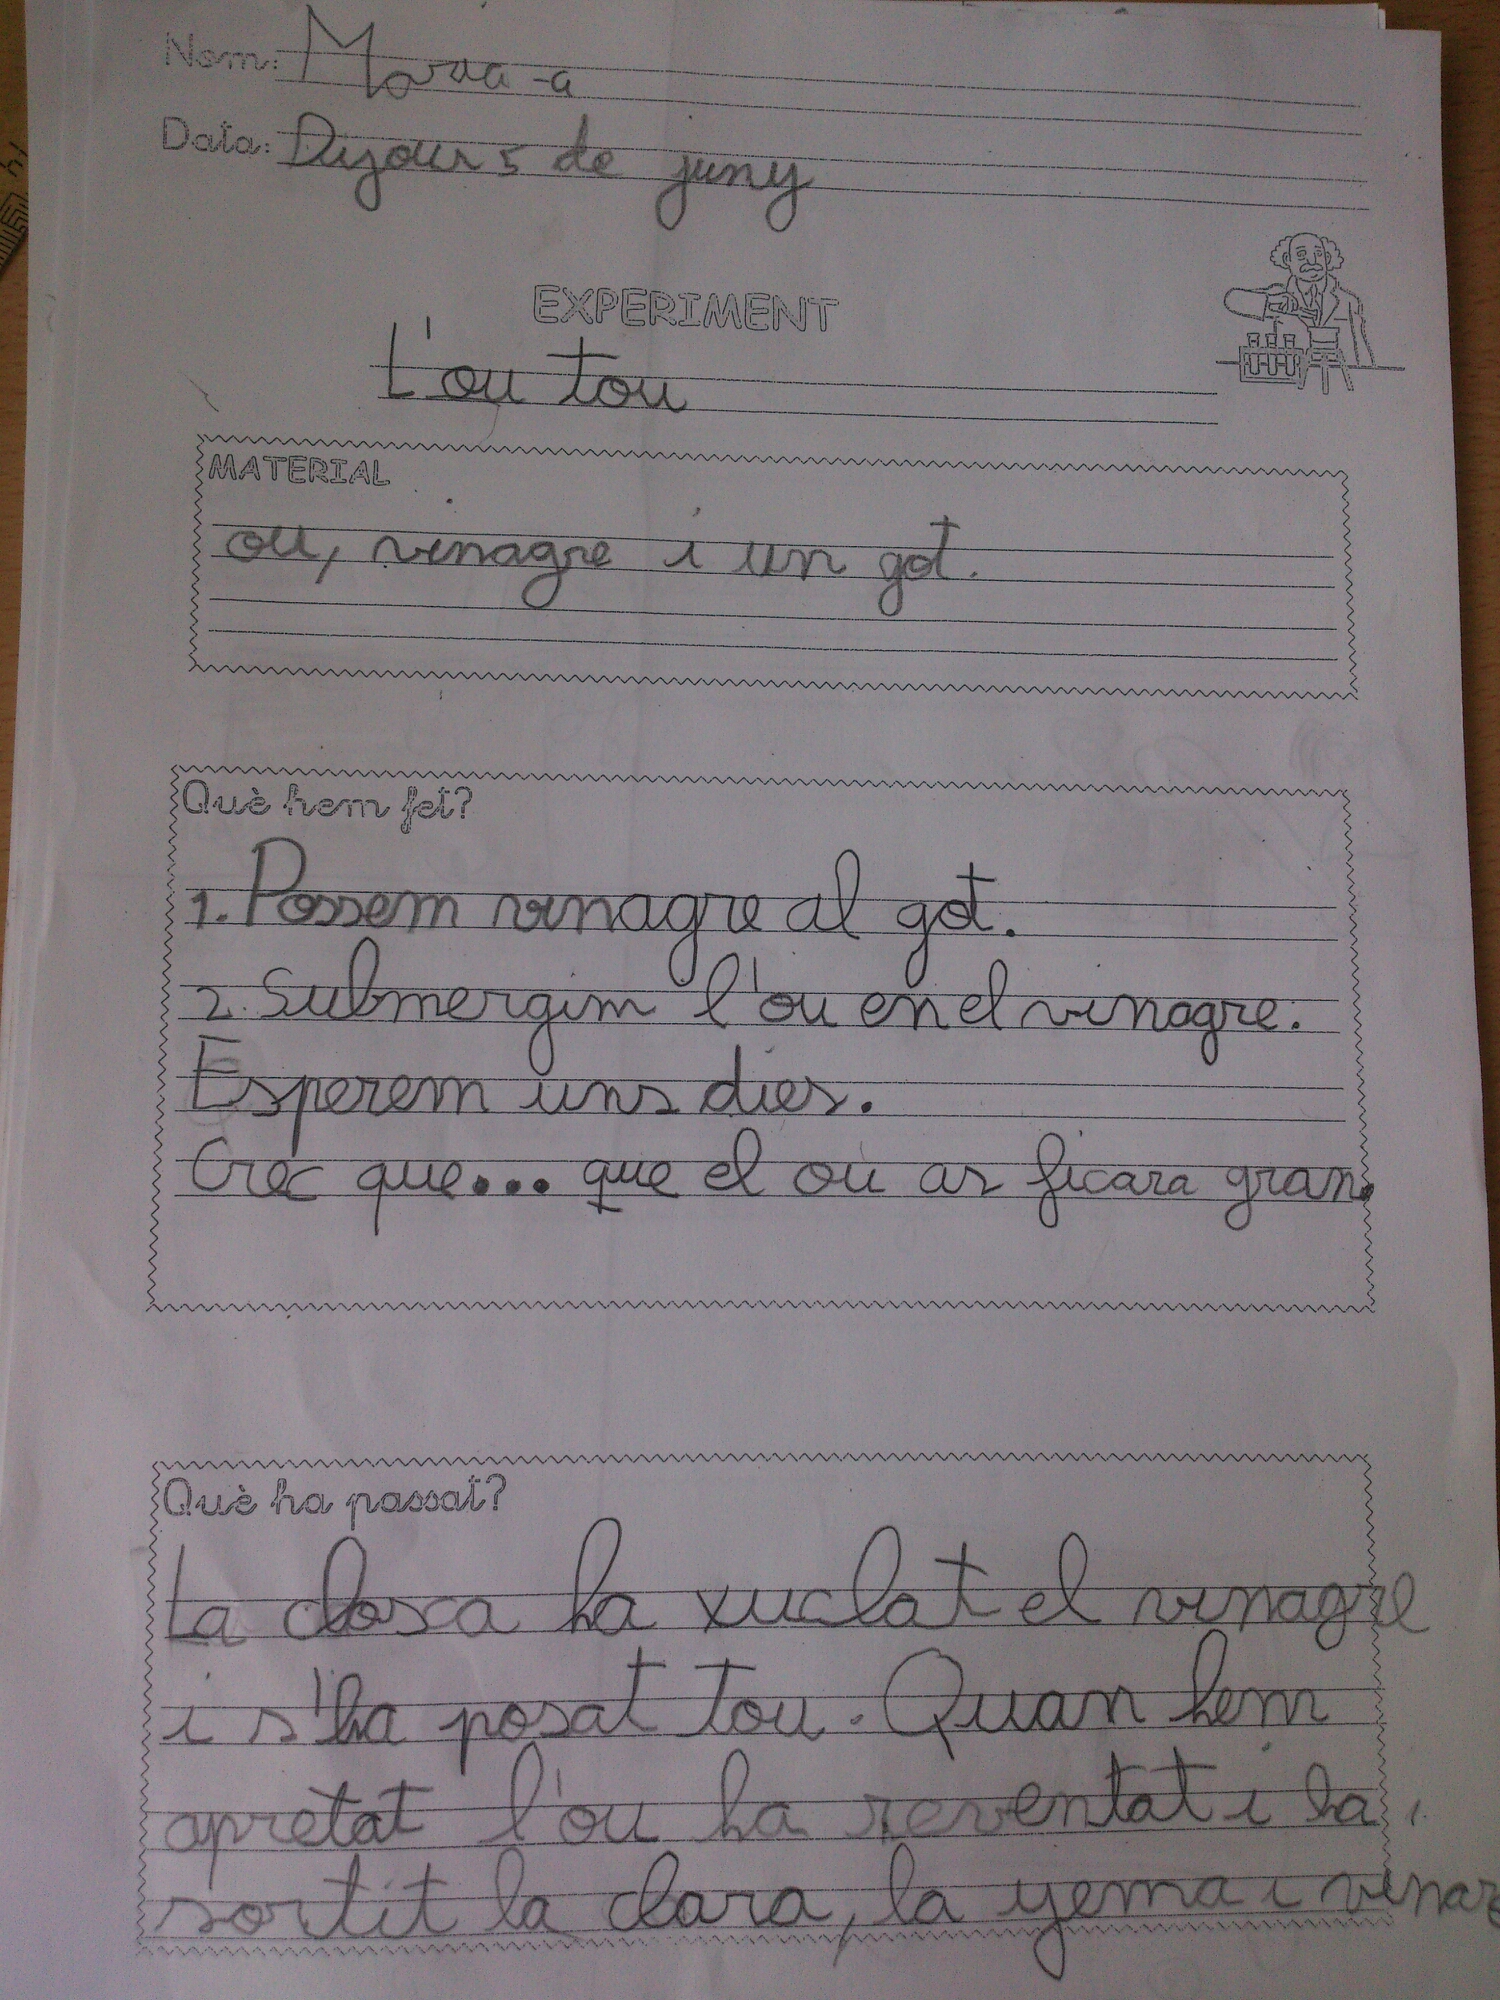 Nom: Maria -a
Data: Dijous 5 de juny
EXPERIMENT
L'ou tou
MATERIAL
ou, vinagre i un got.
Què hem fet?
1. Possem vinagre al got.
2. Submergim l'ou en el vinagre.
Esperem uns dies.
Crec que... que el ou as ficara gran.
Què ha passat?
La closca ha xuclat el vinagre
i s'ha posat tou. Quan hem
apretat l'ou ha reventat i ha
sortit la clara, la yema i